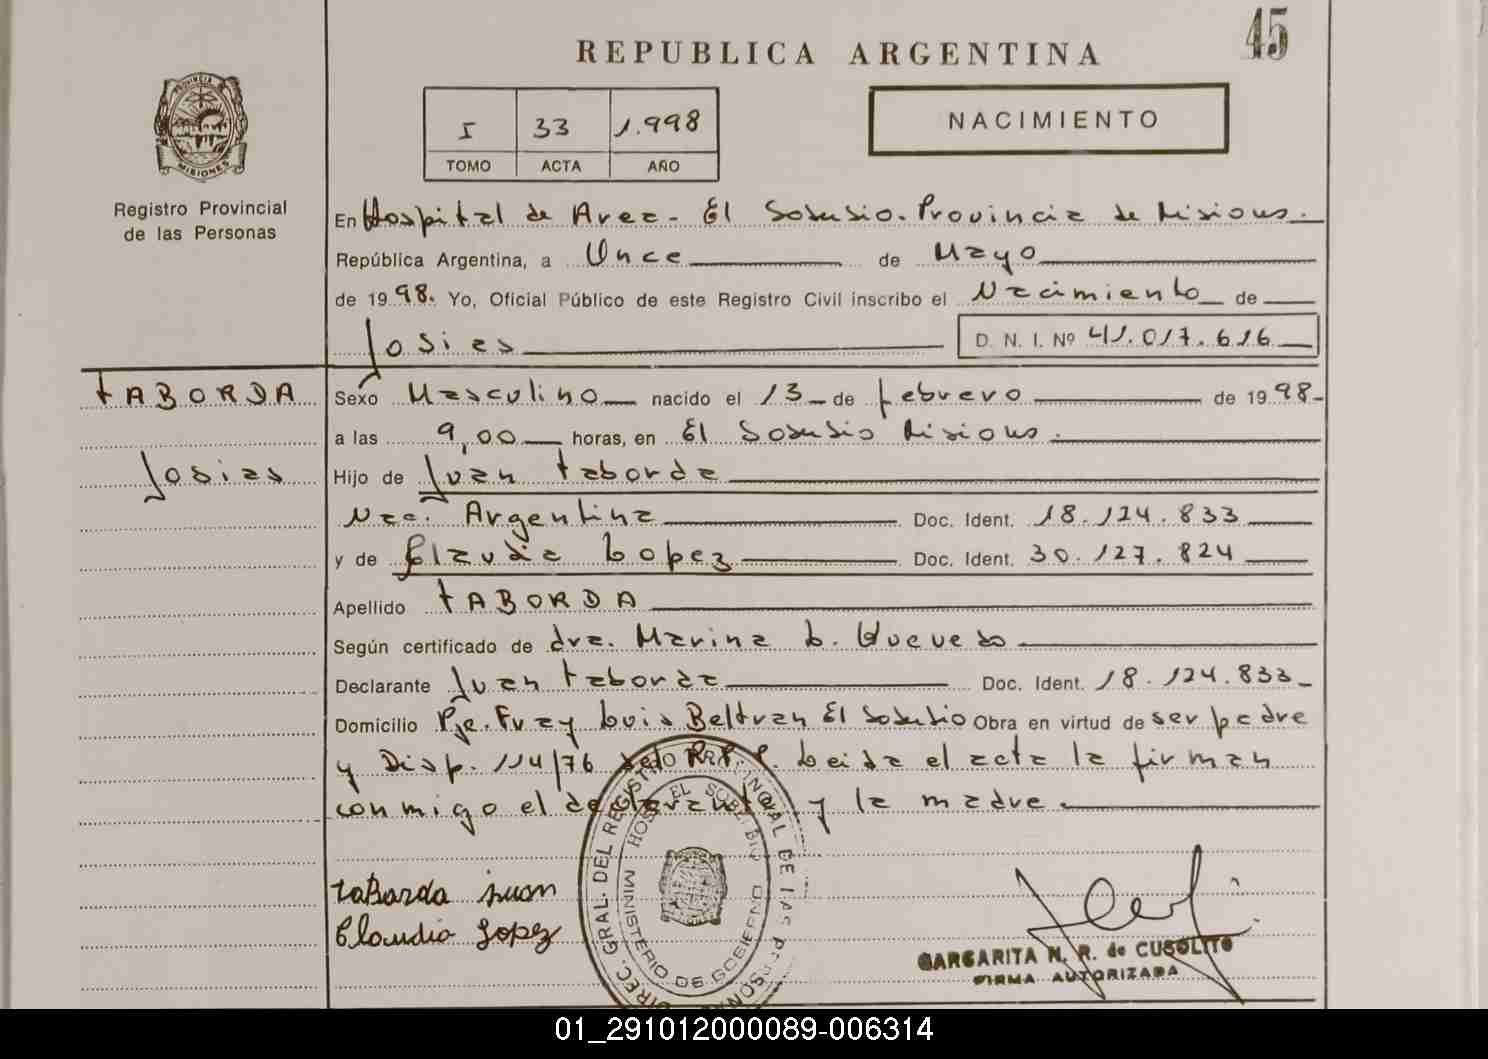 45
REPUBLICA ARGENTINA
I 33 1.998
TOMO ACTA AÑO
NACIMIENTO
PROVINCIA DE
MISIONES
Registro Provincial
de las Personas
En Hospital de Area - El Soberbio - Provincia de Misiones.
República Argentina, a Once de Mayo
de 1998. Yo, Oficial Público de este Registro Civil inscribo el Nacimiento de
Josias
D. N. I. Nº 41.017.616
TABORDA
Josias
Sexo Masculino nacido el 13 de febrero de 1998
a las 9,00 horas, en El Soberbio Misiones.
Hijo de Juan Taborda
Nac. Argentina Doc. Ident. 18.124.833
y de Claudia Lopez Doc. Ident. 30.127.824
Apellido TABORDA
Según certificado de dra. Marina L.
Declarante Juan Taborda Doc. Ident. 18.124.833
Domicilio Pje. Fray Luis Beltran El Soberbio Obra en virtud de ser padre
y Disp. 114/76 del R.P.P. Leida el acta la firman
conmigo el declarante y la madre.
Taborda Juan
Claudia Lopez
DIREC. GRAL. DEL REGISTRO PROVINCIAL DE LAS PERSONAS
MINISTERIO DE GOBIERNO
HOSP. EL SOBERBIO
MARGARITA N. R. de CUSOLITO
FIRMA AUTORIZADA
01_291012000089-006314